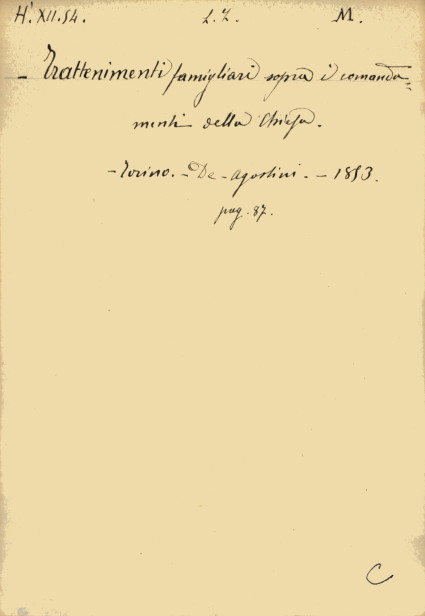 H'. XII. 54. L. Z. M.
- Trattenimenti famigliari sopra i comanda=
menti della Chiesa.
- Torino. - De-Agostini. - 1853.
pag. 87.
C